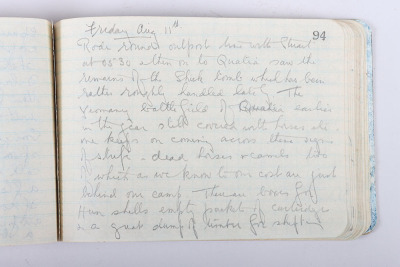 Friday Aug 11th
94
Rode round outpost line with Stuart
at 03.30 & then on to Quatia saw the
remains of the Shek tomb which has been
rather roughly handled lately. The
yeomanry battlefield of Quatia earlier
in the year still covered with horses etc.
one keeps on coming across these signs
of strife - dead horses & camels two
of which as we know to our cost are just
behind our camp. There are boxes for
Hun shells empty packets of cartridges
& a great dump of timber for